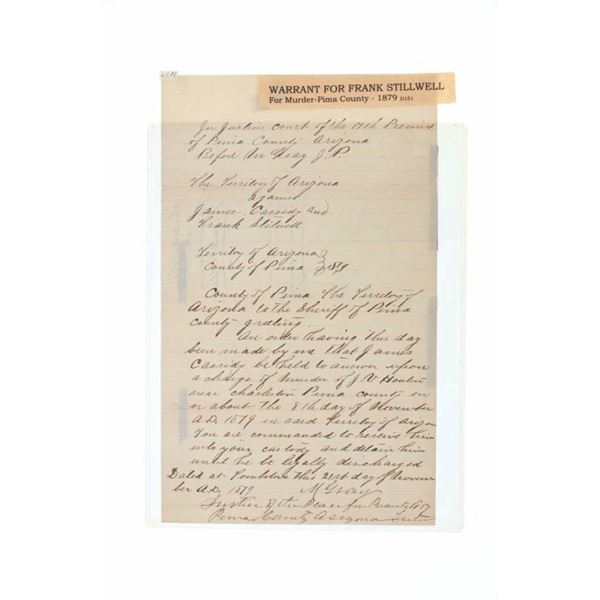 WARRANT FOR FRANK STILLWELL
For Murder-Pima County - 1879 D151
In Justice Court of the 17th Precinct
of Pima County Arizona
Before M Gray J.P.
The Territory of Arizona
against
James Cassidy and
Frank Stilwell
Territory of Arizona
County of Pima
County of Pima The Territory of
Arizona to the Sheriff of Pima
County greeting
An order having this day
been made by me that James
Cassidy be held to answer upon
a charge of Murder of J V
near Charleston Pima County on
or about the 8th day of November
A.D. 1879 in said Territory of Arizona
You are commanded to receive him
into your custody and detain him
until he be legally discharged
Dated at Tombstone this 21st day of Novem
ber A.D. 1879 M Gray
Justice of the Peace Precinct No 17
Pima County Arizona